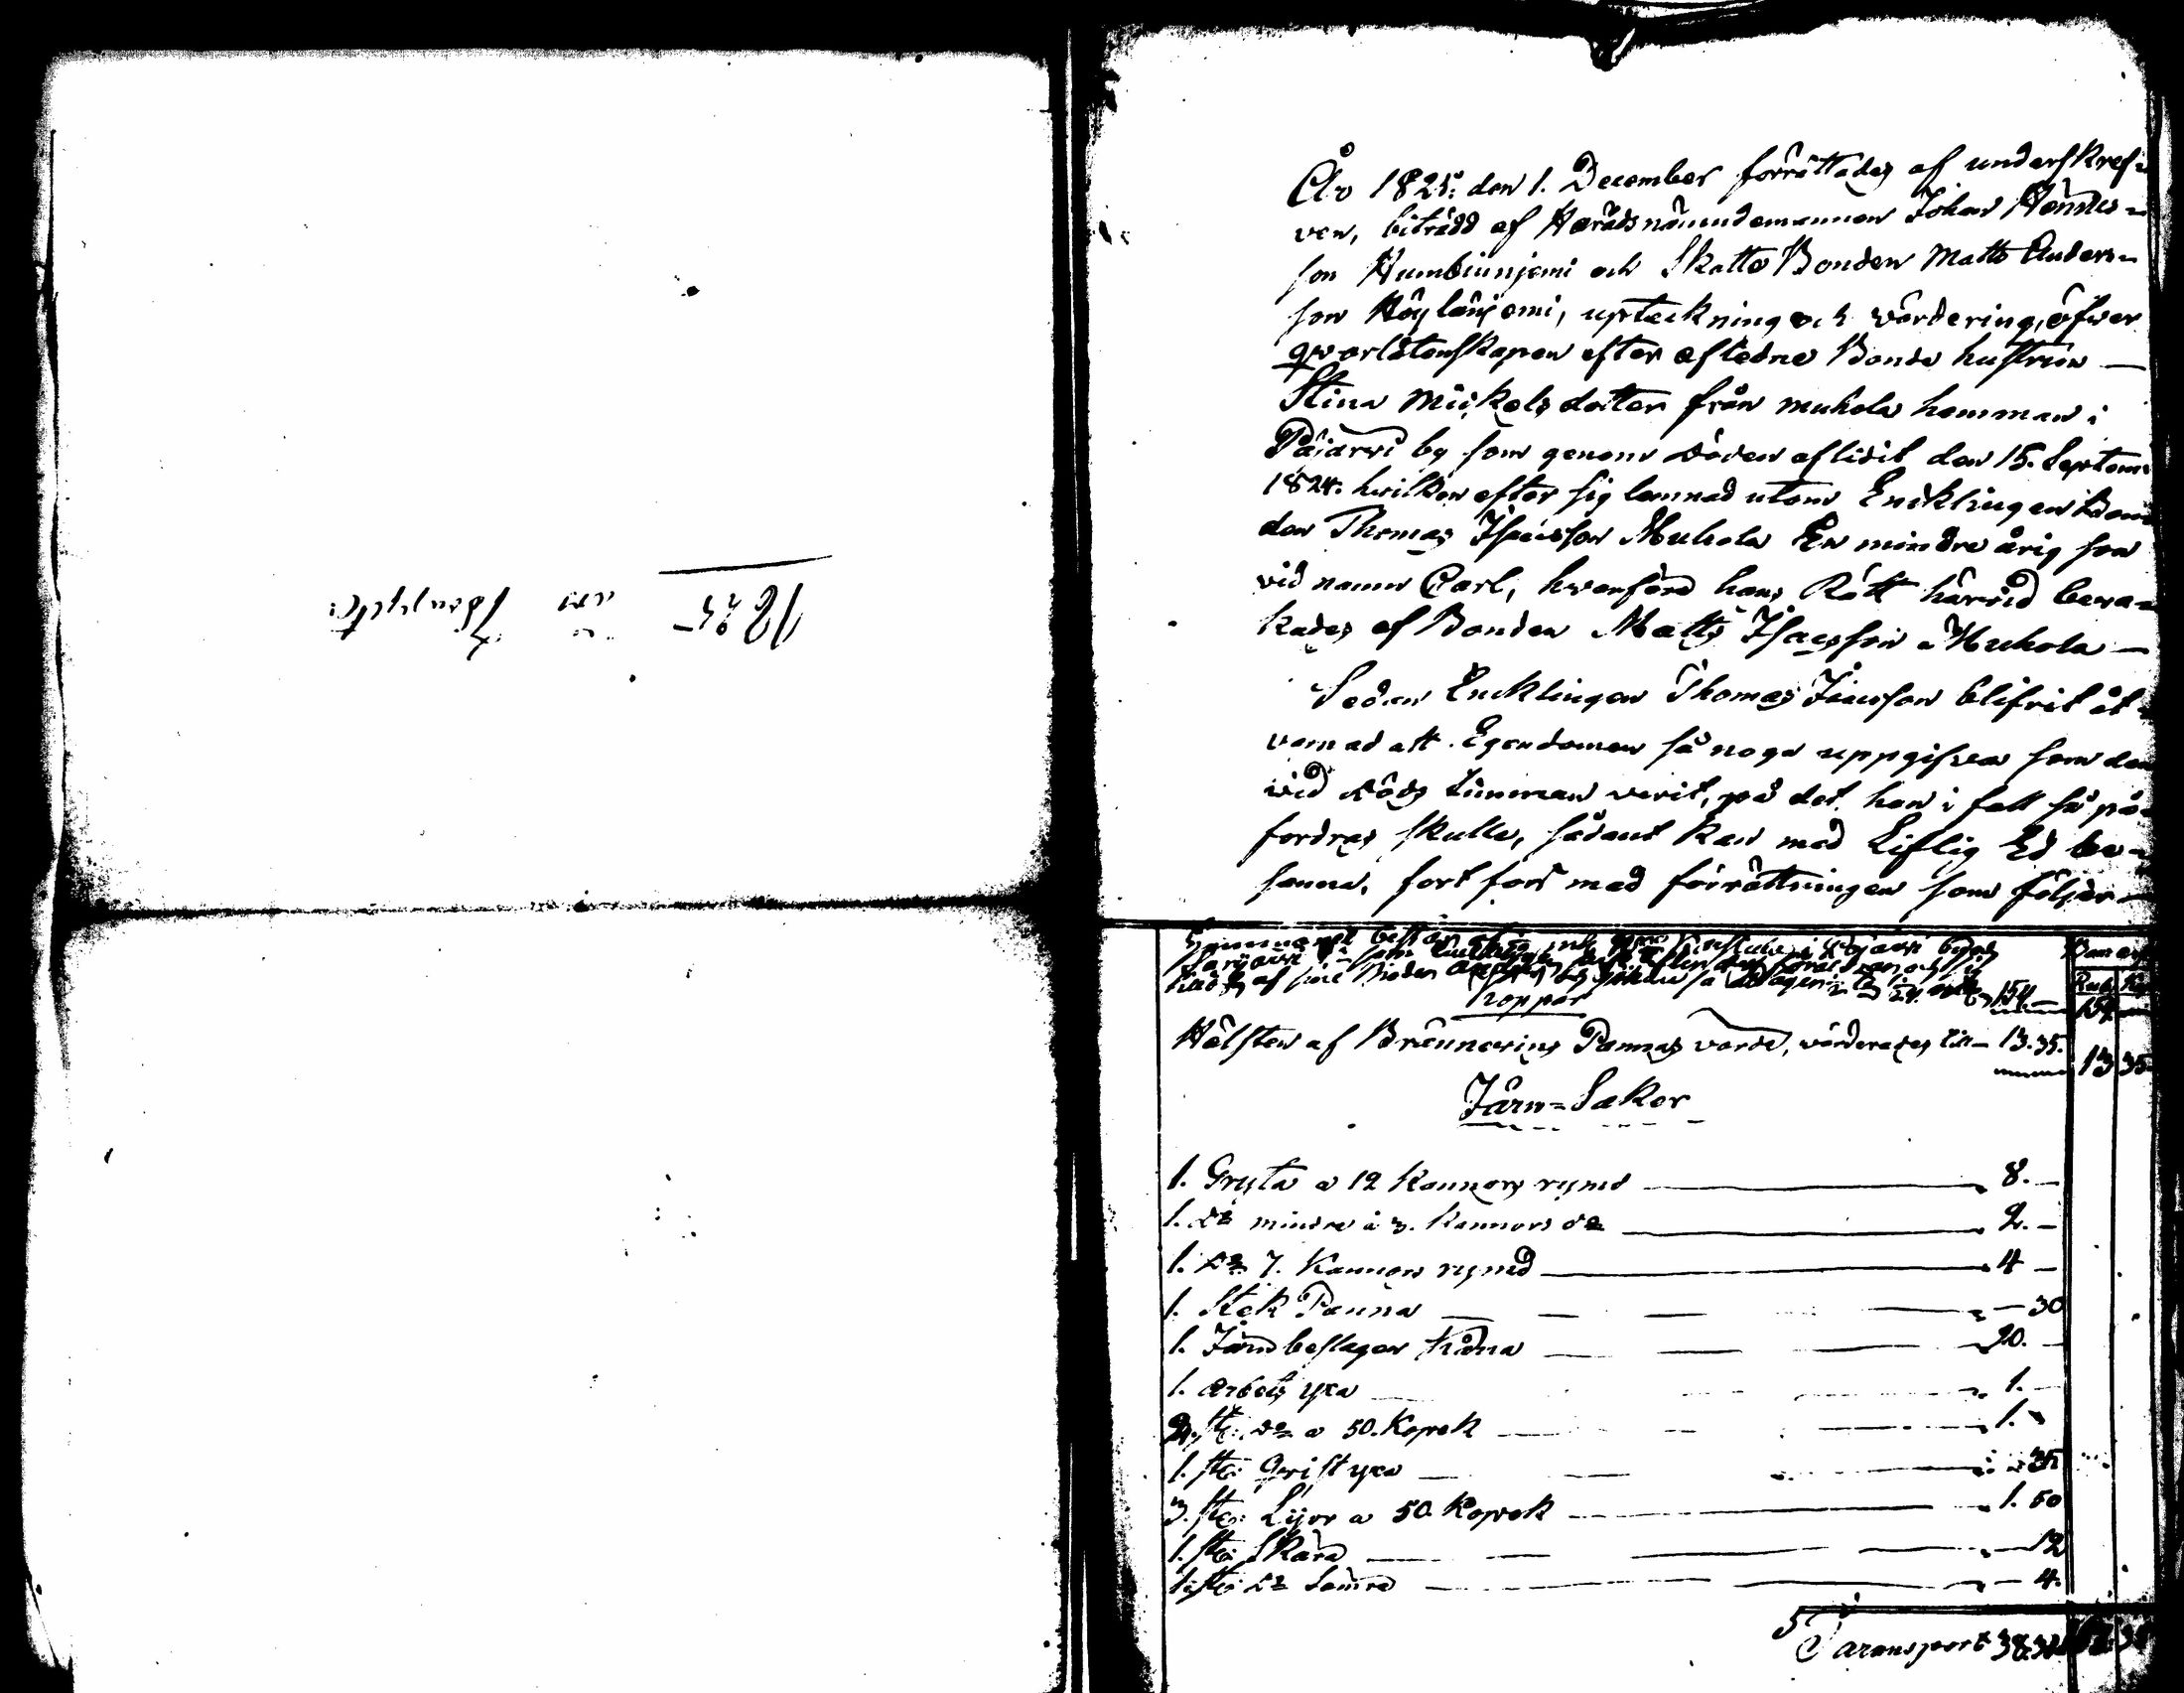 1825
År 1825. den 1. December förrättades af underskref-
ven, biträdd af Häradsnämndemannen Johan Hendrics-
son Humbiinjemi och Skatte Bonden Matts Anders-
son Höylänjemi, upteckning och värdering, öfwer
qvarlåtenskapen efter afledne Bonde hustrun —
Stina Mickels dotter från Muhola hemman i
Pääjärvi by som genom döden aflidit den 15. Septem
1824. hvilken efter sig lemnad utom Encklingen Bon
den Thomas Isacsson Muhola En minderårig son
vid namn Carl, hvarföre hans Rätt härvid beva-
kades af Bonden Matts Isacsson Muhola —
Sedan Encklingen Thomas Isacsson blifvit åt
varnad att Egendomen så noga uppgifva som den
wid döds timman varit, på det han i fall så på-
fordras skulle, sådant kan med Liflig Ed be-
sanna, fort fors med förrättningen som följer —
154.— 154
Koppar
Hälften af Brännevins Pannas värde, värderades till — 13.35. 13 35
Järn-Saker
1. Gryta a 12 Kannors rymd — 8.—
1. do mindre à 3. Kannors do — 2.—
1. do 7. Kannors rymd — 4 —
1. Stek Panna — — 30
1. Järnbeslagen Kärra — 20.—
1. arbets yxa — 1.—
2. st: do a 50. Kopek — 1.
1. st: Qvist yxa — 35
3. st: Lijor a 50. Kopek — 1. 50
1. st: Skära — 12
1. st: do sämre — 4.
Transport 38.31